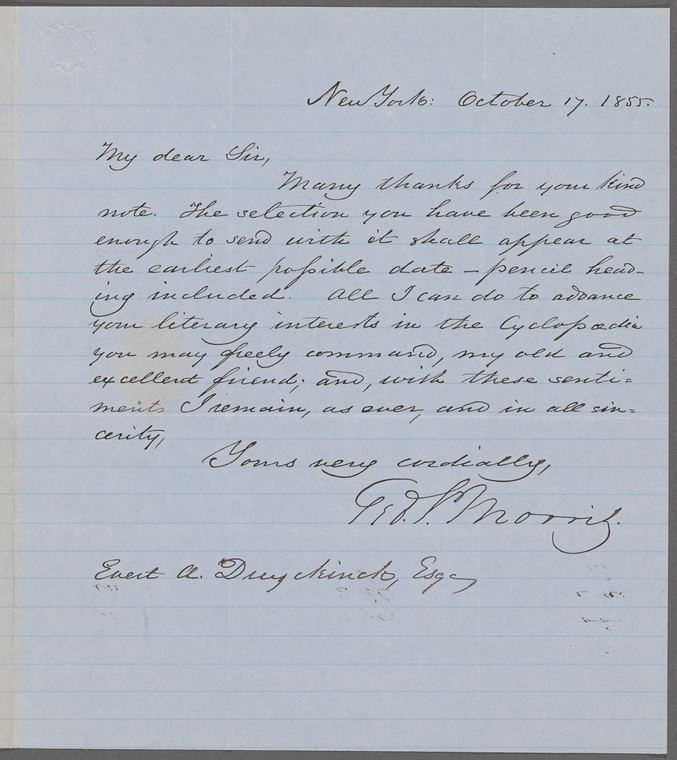 New York: October 17. 1855.
My dear Sir,
Many thanks for your kind
note. The selection you have been good
enough to send with it shall appear at
the earliest possible date — pencil head-
ing included. All I can do to advance
your literary interests in the Cyclopædia
you may freely command, my old and
excellent friend; and, with these senti=
ments I remain, as ever, and in all sin=
cerity,
Yours very cordially,
Geo. P. Morris.
Evert A. Duyckinck, Esq